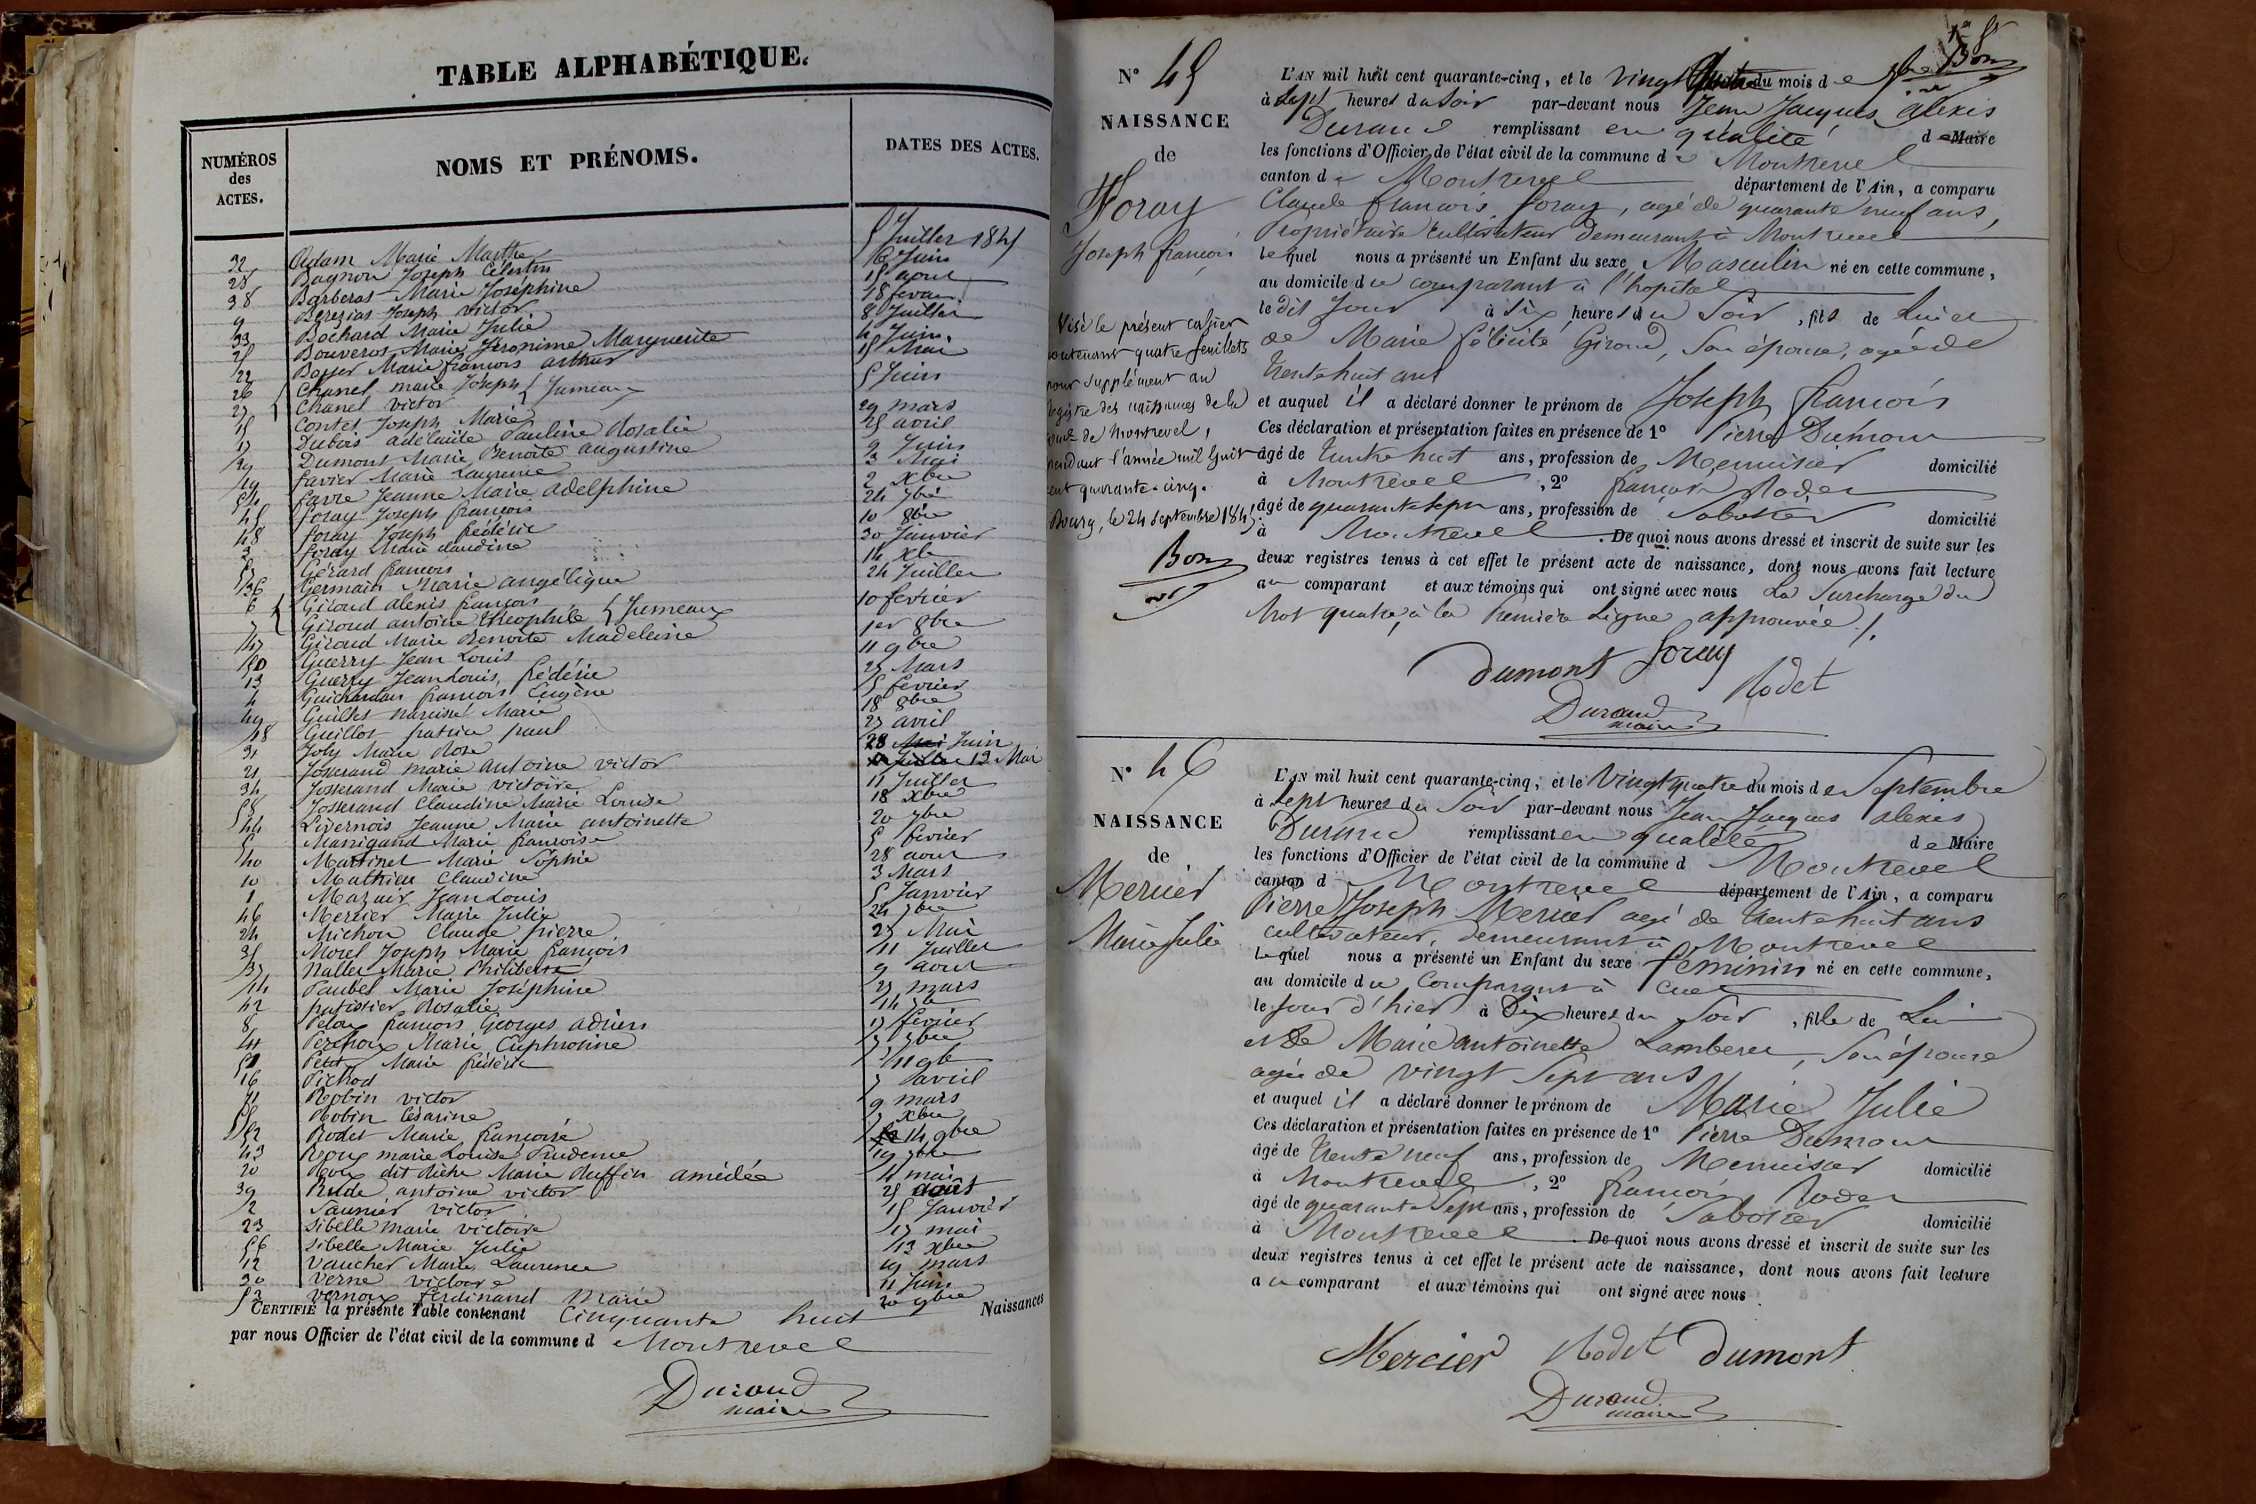 TABLE ALPHABÉTIQUE.
NUMÉROS
des
ACTES.
NOMS ET PRÉNOMS.
DATES DES ACTES.
32 Adam Marie Marthe 5 Juillet 1845
28 Bagnon Joseph Célestin 16 Juin
38 Barberas Marie Joséphine 15 aout
9 Berezias Joseph victor 18 fevrier
33 Bochard Marie Julie 8 Juillet
25 Bouveros Marie Jéronime Marguerite 4 Juin
22 Boyer Marie françois arthur 15 Mai
26 Chanel marie Joseph } Jumeaux 5 Juin
27 Chanel victor
15 Contet Joseph Marie 29 mars
17 Dubois adélaïde Pauline Rosalie 25 avril
29 Dumont Marie Benoite augustine 9 Juin
19 favier Marie Laurence 3 Mai
54 favre Jeanne Marie adelphine 2 Xbre
45 foray Joseph françois 24 7bre
48 foray Joseph frédéric 10 8bre
3 foray Marie claudine 30 Janvier
57 Gérard françois 14 Xbre
36 Germain Marie angélique 24 Juillet
6 { Giroud alexis françois } Jumeaux 10 fevrier
7 Giroud antoine théophile
47 Giroud Marie Benoite Madeleine 1er 8bre
50 Guerry Jean Louis 11 9bre
13 Guerry Jean Louis frédéric 25 Mars
4 Guichardan françois Eugène 5 fevrier
49 Guillet narcisse Marie 18 8bre
18 Guillot patrice paul 27 avril
31 Joly Marie Rose 28 Juin
21 Josserand marie antoine victor 12 Mai
34 Josserand Marie victoire 11 Juillet
58 Josserand Claudine Marie Louise 18 Xbre
44 Livernois Jeanne Marie antoinette 20 7bre
5 Marrigand Marie françoise 5 fevrier
40 Martinet Marie Sophie 28 aout
10 Mathieu Claudine 3 Mars
1 Mazuir Jean Louis 5 Janvier
46 Mercier Marie Julie 24 7bre
24 Michon Claude pierre 25 Mai
35 Morel Joseph Marie françois 11 Juillet
37 Nallet Marie Philiberte 9 aout
14 Paubel Marie Joséphine 27 mars
42 patissier Rosalie 14 7bre
8 Pelou françois Georges adrien 17 fevrier
41 Perchoux Marie Euphrosine 7 7bre
51 Petit Marie frédéric 11 9bre
16 Pichod 7 avril
11 Robin victor 9 mars
55 Robin Césarine 7 Xbre
52 Rodet Marie françoise 14 9bre
43 Roux marie Louise Prudence 19 7bre
20 Roux dit dièhe Marie Ruffin amédée 11 mai
39 Rude antoine victor 25 août
2 Saunier victor 15 Janvier
23 Sibelle marie victoire 17 mai
56 Sibelle Marie Julie 13 Xbre
12 Vaucher Marie Laurence 19 mars
30 Verne victoire 11 Juin
53 Vernoux ferdinand Marie 20 9bre
CERTIFIÉ la présente Table contenant Cinquante huit Naissances
par nous Officier de l'état civil de la commune d Montrevel
Durand
maire
1er f
Bon
N° 45
NAISSANCE
de
Foray
Joseph françois
Visé le présent cahier
contenant quatre feuillets
pour supplément au
registre des naissances de la
de Montrevel,
pendant l'année mil huit
cent quarante-cinq.
Bourg, le 24 septembre 1845
Bon
L'AN mil huit cent quarante-cinq, et le vingt quatre du mois de 7bre
à Sept heures du Soir par-devant nous Jean Jacques alexis
Durand remplissant en qualité de Maire
les fonctions d'Officier de l'état civil de la commune de Montrevel
canton de Montrevel département de l'Ain, a comparu
Claude françois foray, agé de quarante neuf ans,
Propriétaire Cultivateur demeurant à Montrevel
lequel nous a présenté un Enfant du sexe Masculin né en cette commune,
au domicile du comparant à l'hopital
le dit Jour à Six heures du Soir, fils de Lui et
de Marie félicité Giroud, son épouse, agée de
trente huit ans
et auquel il a déclaré donner le prénom de Joseph françois
Ces déclaration et présentation faites en présence de 1° Pierre Dumont
âgé de trente huit ans, profession de Menuisier domicilié
à Montrevel, 2° françois Rodet
âgé de quarante sept ans, profession de Sabotier domicilié
à Montrevel. De quoi nous avons dressé et inscrit de suite sur les
deux registres tenus à cet effet le présent acte de naissance, dont nous avons fait lecture
au comparant et aux témoins qui ont signé avec nous La Surcharge du
Mot quatre, à la Première Ligne approuvée /.
Dumont foray
Rodet
Durand
maire
N° 46
NAISSANCE
de
Mercier
Marie Julie
L'AN mil huit cent quarante-cinq, et le Vingt quatre du mois de Septembre
à Sept heures du Soir par-devant nous Jean Jacques alexis
Durand remplissant en qualité de Maire
les fonctions d'Officier de l'état civil de la commune d Montrevel
canton d Montrevel département de l'Ain, a comparu
Pierre Joseph Mercier agé de trente huit ans
cultivateur, demeurant à Montrevel
Lequel nous a présenté un Enfant du sexe féminin né en cette commune,
au domicile du Comparant à Cuet
le Jour d'hier à Dix heures du Soir, fille de Lui
et de Marie antoinette Lamberet, son épouse
agée de vingt Sept ans
et auquel il a déclaré donner le prénom de Marie Julie
Ces déclaration et présentation faites en présence de 1° Pierre Dumont
âgé de trente neuf ans, profession de Menuisier domicilié
à Montrevel, 2° françois Rodet
âgé de quarante Sept ans, profession de Sabotier domicilié
à Montrevel. De quoi nous avons dressé et inscrit de suite sur les
deux registres tenus à cet effet le présent acte de naissance, dont nous avons fait lecture
au comparant et aux témoins qui ont signé avec nous
Mercier Rodet Dumont
Durand
maire